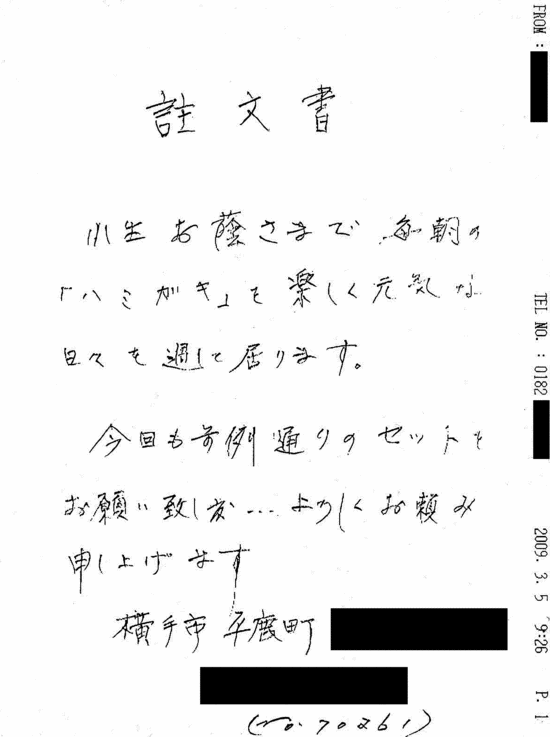 註文書
小生お蔭さまで毎朝の
「ハミガキ」を楽しく元気な
日々を過して居ります。
今回も前例通りのセットを
お願い致し度…よろしくお頼み
申し上げます
横手市平鹿町
(No.70261)
FROM :
TEL NO. : 0182
2009. 3. 5 9:26 P. 1